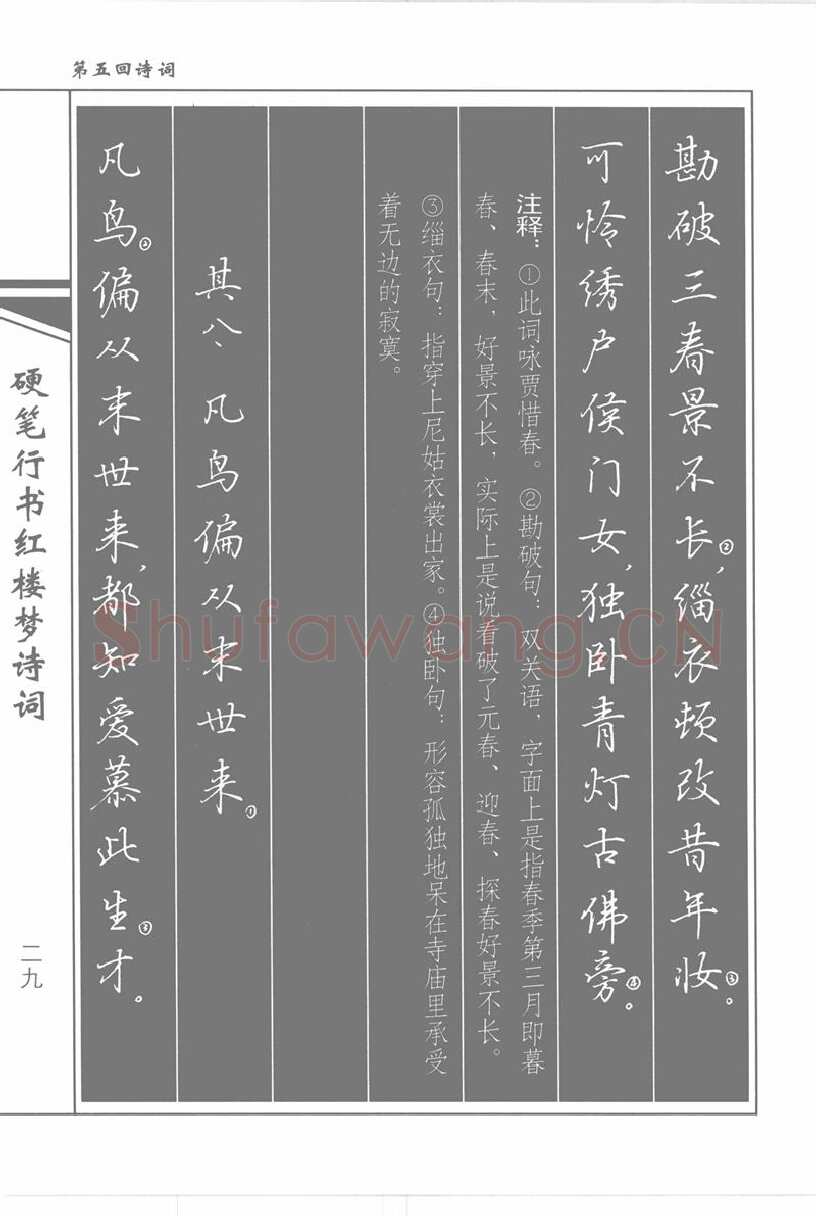 第五回诗词
勘破三春景不长②,缁衣顿改昔年妆③。
可怜绣户侯门女,独卧青灯古佛旁④。
注释：①此词咏贾惜春。②勘破句：双关语，字面上是指春季第三月即暮
春、春末，好景不长，实际上是说看破了元春、迎春、探春好景不长。
③缁衣句：指穿上尼姑衣裳出家。④独卧句：形容孤独地呆在寺庙里承受
着无边的寂寞。
其八、凡鸟偏从末世来①
凡鸟②偏从末世来,都知爱慕此生③才。
硬笔行书红楼梦诗词
二九
Shufawang.CN